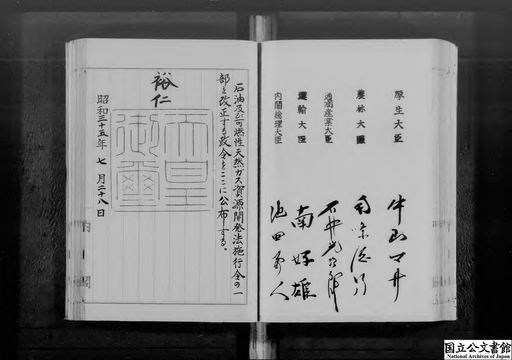 厚生大臣 中山マサ
農林大臣 南條徳男
通商産業大臣 石井光次郎
運輸大臣 南好雄
内閣総理大臣 池田勇人
石油及び可燃性天然ガス資源開発法施行令の一
部を改正する政令をここに公布する。
裕仁
天皇
御璽
昭和三十五年 七月二十八日
国立公文書館
National Archives of Japan